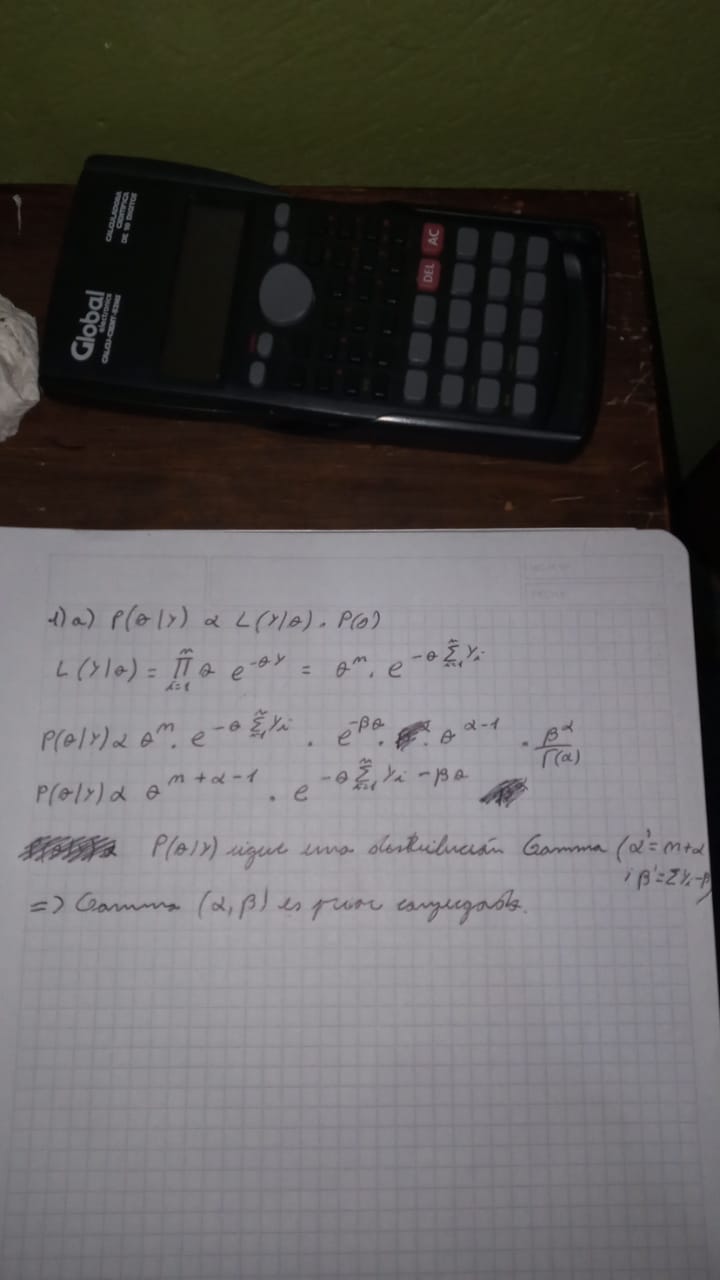 Global
electronics
CALCU-CIENT-82MS
CALCULADORA
CIENTIFICA
DE 10 DIGITOS
DEL AC
1) a) P(θ|Y) α L(Y|θ) . P(θ)
L(Y|θ) = ∏ᵢ₌₁ⁿ θ e^(-θY) = θⁿ . e^(-θ Σᵢ₌₁ⁿ Yᵢ)
P(θ|Y) α θⁿ . e^(-θ Σᵢ₌₁ⁿ Yᵢ) . e^(-βθ) . θ^(α-1) . β^α/Γ(α)
P(θ|Y) α θ^(n+α-1) . e^(-θ Σᵢ₌₁ⁿ Yᵢ - βθ)
P(θ|Y) sigue una distribución Gamma (α'= n+α
; β'= ΣYᵢ-β)
=> Gamma (α,β) es prior conjugada.